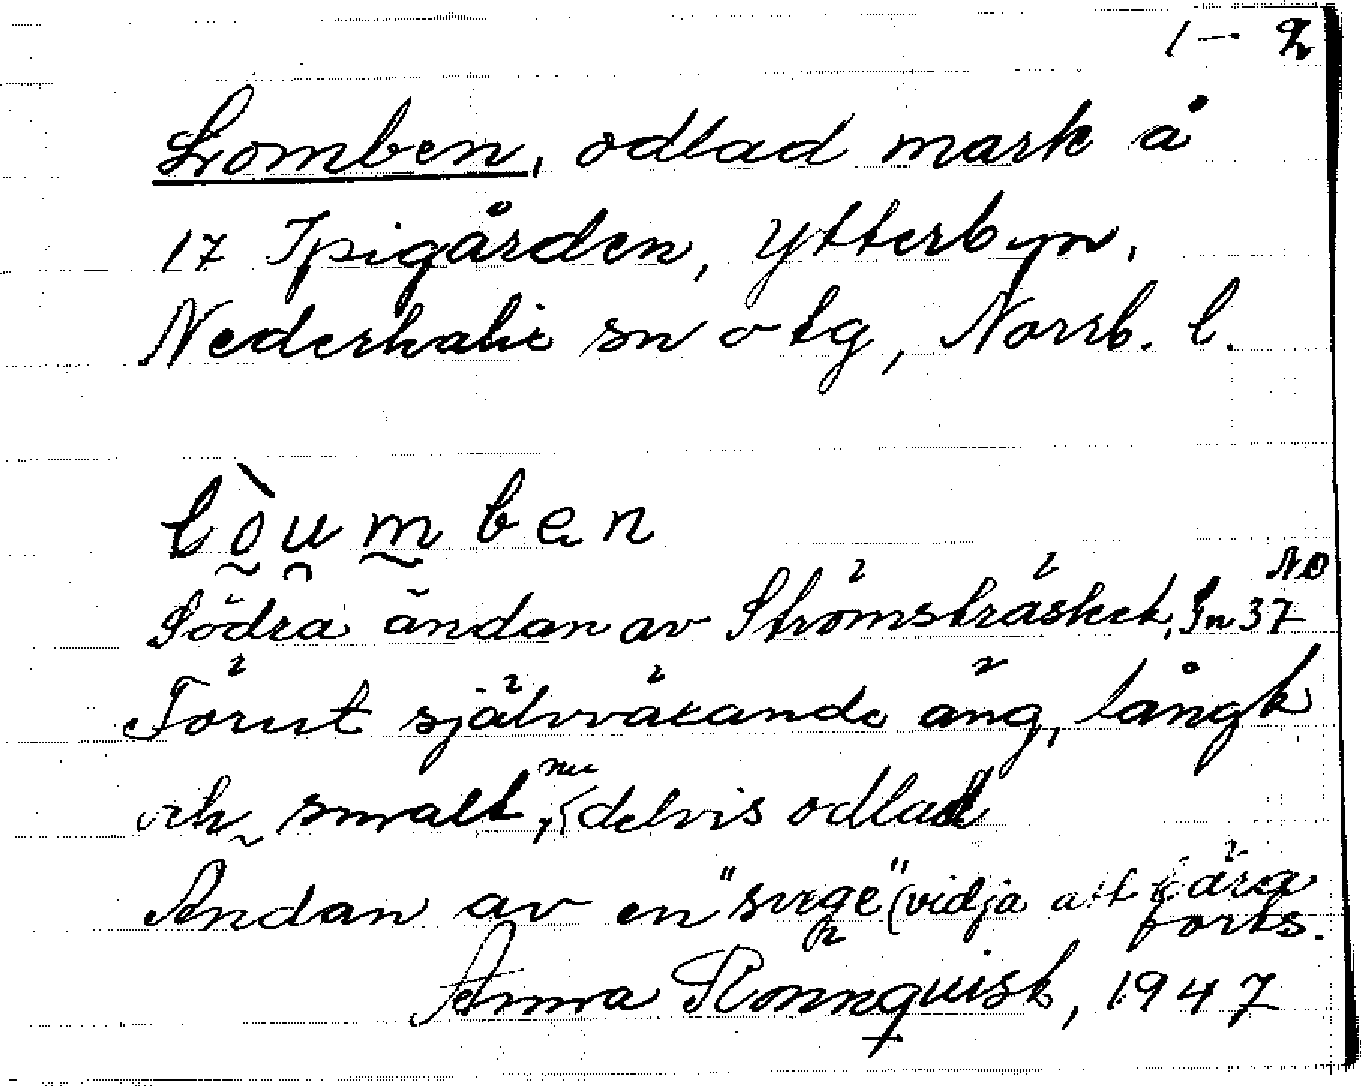 1 – 2
Lomben, odlad mark å
17 Ipigården, Ytterbyn,
Nederkalix sn o tg, Norrb. l.
lòumben
Södra ändan av Strömsträsket, In 37 NO
Förut självväxande äng, långt
och smalt, nu delvis odlad
Ändan av en "svege" (vidja att bära
forts.
Anna Rönnqvist, 1947